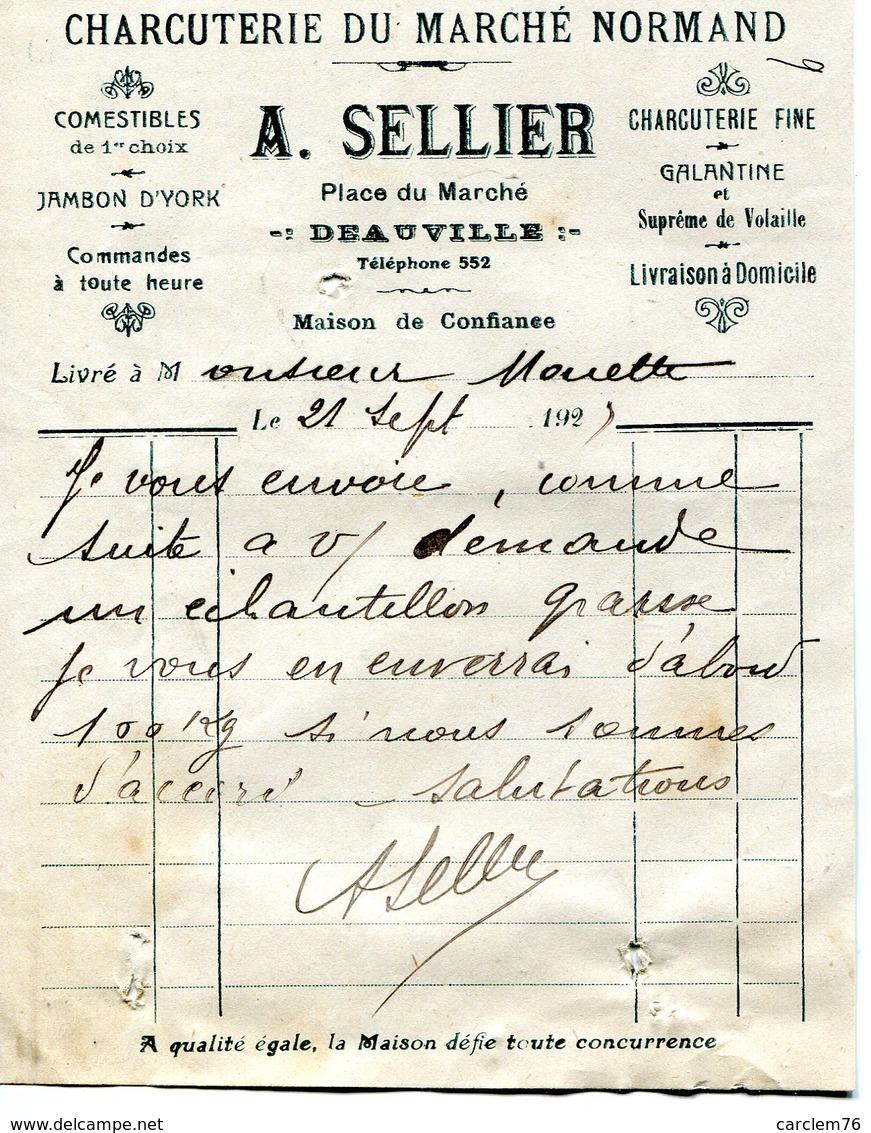 CHARCUTERIE DU MARCHÉ NORMAND
COMESTIBLES
de 1er choix
JAMBON D'YORK
Commandes
à toute heure
A. SELLIER
Place du Marché
DEAUVILLE
Téléphone 552
Maison de Confiance
CHARCUTERIE FINE
GALANTINE
et
Suprême de Volaille
Livraison à Domicile
Livré à Monsieur
Le 21 Sept 1927
Je vous envoie, comme
suite a v/ demande
un échantillon graisse
Je vous en enverrai d'abord
100 Kg si nous sommes
d'accord – Salutations
ASellier
A qualité égale, la Maison défie toute concurrence
www.delcampe.net
carclem76